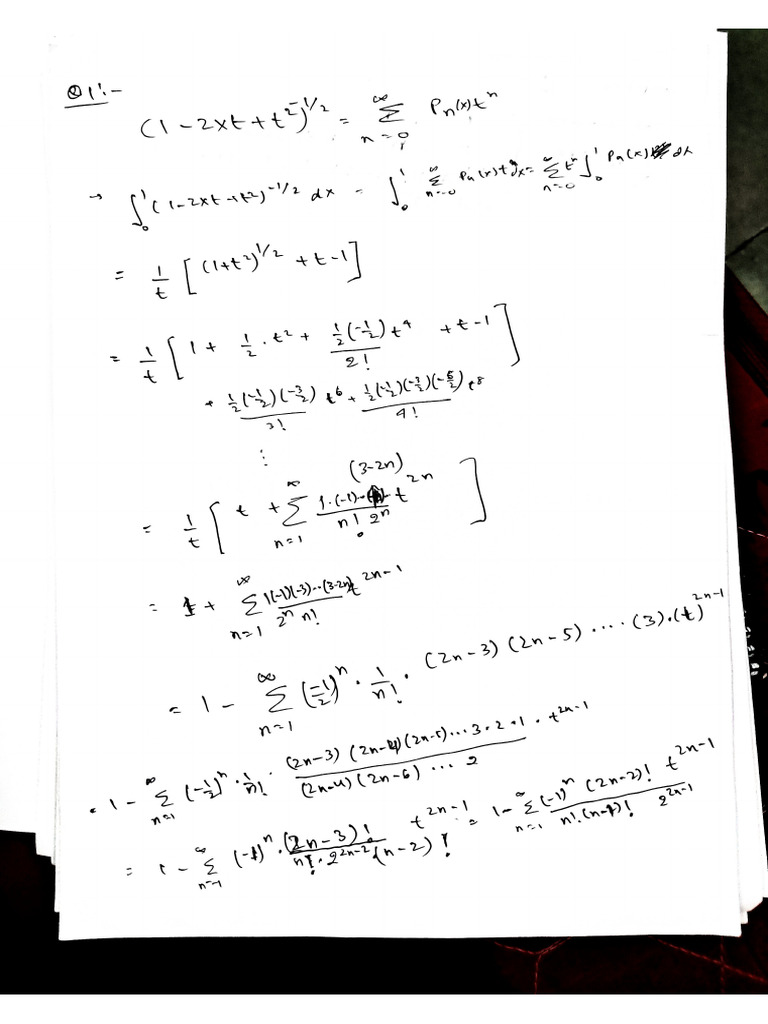 Q1:-
(1-2xt+t²)^{-1/2} = ∑_{n=0}^{∞} P_n(x)t^n
→ ∫_0^1 (1-2xt+t²)^{-1/2} dx = ∫_0^1 ∑_{n=0}^{∞} P_n(x)t^n dx = ∑_{n=0}^{∞} t^n ∫_0^1 P_n(x) dx
= 1/t [(1+t²)^{1/2} + t-1]
= 1/t [1 + 1/2 · t² + (1/2(-1/2))/2! t⁴ + t-1]
+ (1/2(-1/2)(-3/2))/3! t⁶ + (1/2(-1/2)(-3/2)(-5/2))/4! t⁸
⋮
= 1/t [t + ∑_{n=1}^{∞} (1·(-1)··(3-2n))/(n! 2^n) t^{2n}]
= 1 + ∑_{n=1}^{∞} (1(-1)(-3)··(3-2n))/(2^n n!) t^{2n-1}
= 1 - ∑_{n=1}^{∞} (-1/2)^n · 1/n! · (2n-3)(2n-5) ···· (3)·(t)^{2n-1}
= 1 - ∑_{n=1}^{∞} (-1/2)^n · 1/n! · ((2n-3)(2n-4)(2n-5)···3·2·1)/((2n-4)(2n-6) ··· 2) · t^{2n-1}
= 1 - ∑_{n=1}^{∞} (-1)^n · (2n-3)!/(n! · 2^{2n-2}(n-2)!) t^{2n-1} = 1 - ∑_{n=1}^{∞} ((-1)^n (2n-2)!)/(n!·(n-1)!) t^{2n-1}/2^{2n-1}